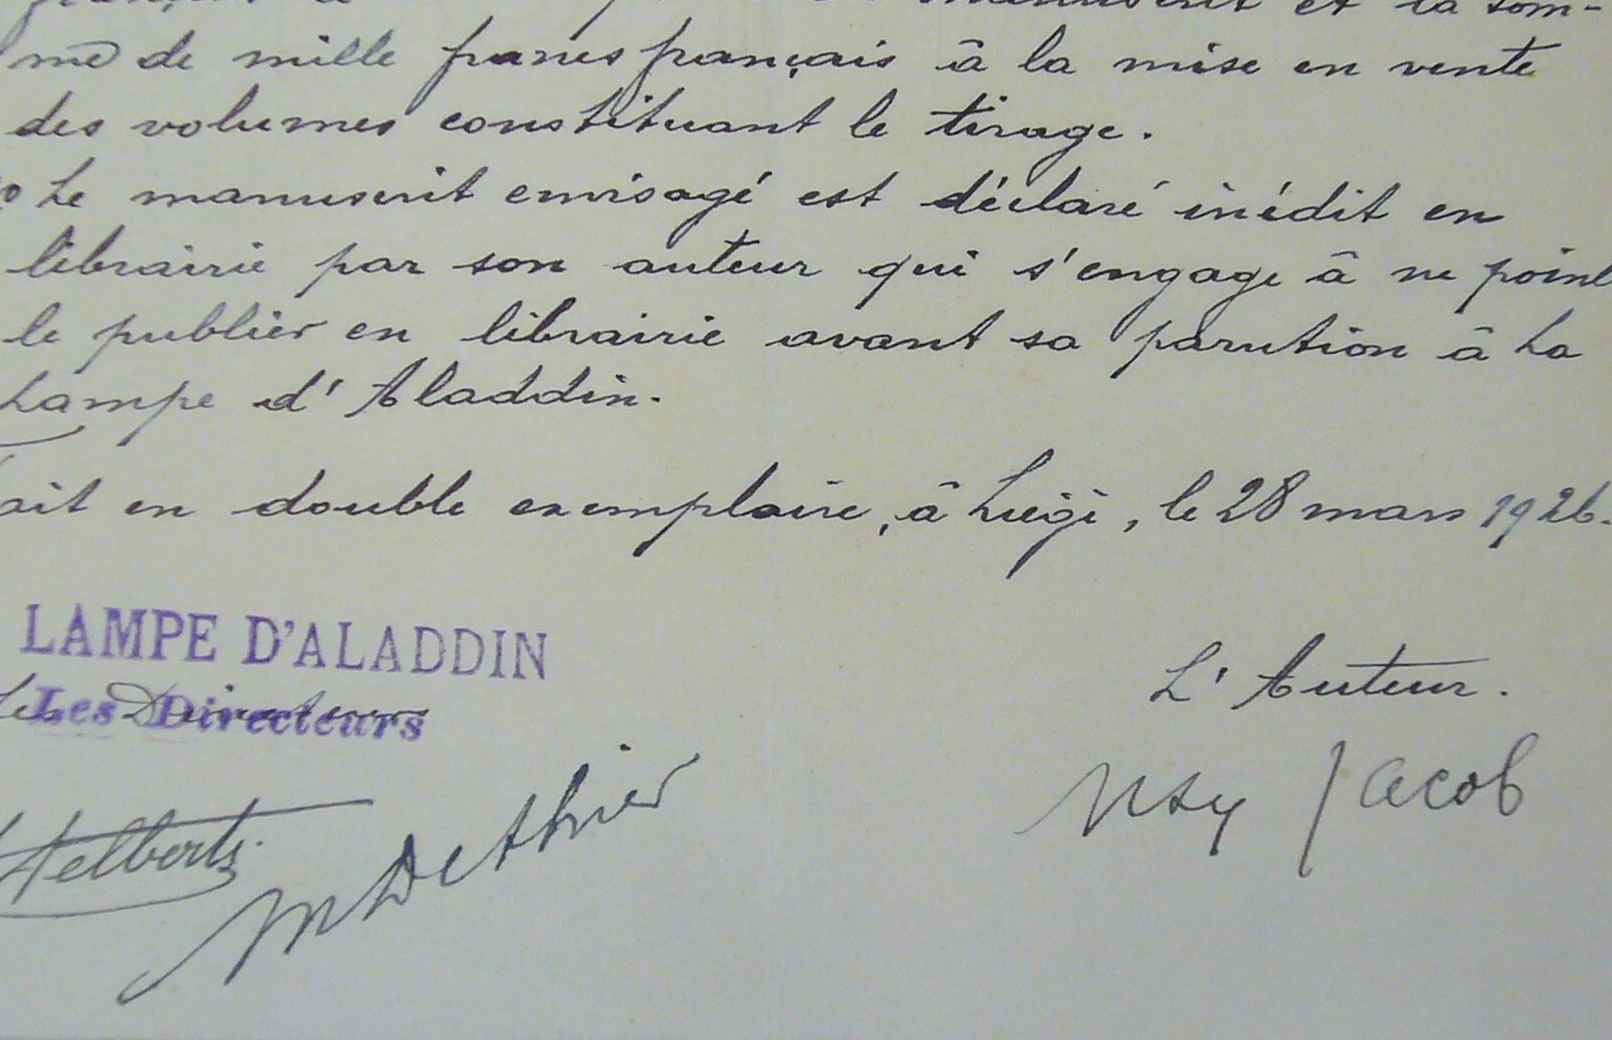 manuscrit et la som-
me de mille francs français à la mise en vente
des volumes constituant le tirage.
Le manuscrit envisagé est déclaré inédit en
librairie par son auteur qui s'engage à ne point
le publier en librairie avant sa parution à La
Lampe d'Aladdin.
ait en double exemplaire, à Liège, le 28 mars 1926.
LAMPE D'ALADDIN
Les Directeurs
L'Auteur.
Max Jacob
M Dethier